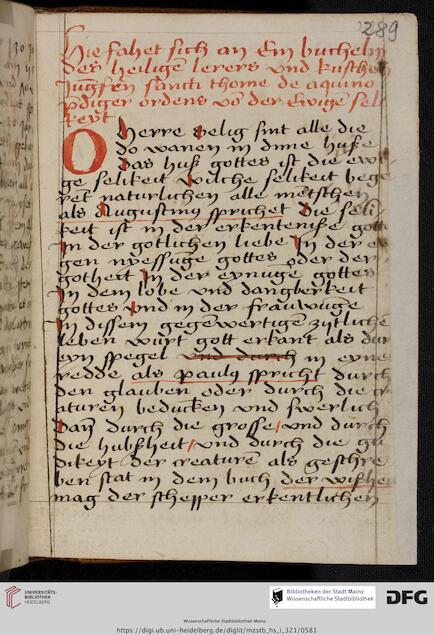 289
Hie fahet sich an Ein buchelin
des heiligen lerers vnd kuschen
Jungfren sancti thome de aquino
pdiger ordens vō der Ewigen seli
keyt
O herre selig sint alle die
do wanen in dime huse
das huß gottes ist die ewi
ge selikeit wilche selikeit bege
rēt naturlichen alle mētschen
als Augustinus sprichet Die seli
keit ist in der erkenteniſe gott
In der gotlichen liebe In der e
gen nyessuge gottes oder der
gotheit In der eynuge gottes
In dem lobe vnd dangberkeit
gottes vnd in der frauwuge
In dissem gegēwertigē zytliche
leben wurt gott erkant als dur
eyn spegel vnd durch in eyne
redde als paulus spricht durch
den glauben oder durch die cr
aturen beducken vnd swerlich
Dan durch die grosse vnd durch
die hubsheit vnd durch die gu
dikeyt der creaturē als geschre
ben stat in dem buch der wißhei
mag der schepper erkentlichen
UNIVERSITÄTS-
BIBLIOTHEK
HEIDELBERG
Bibliotheken der Stadt Mainz
Wissenschaftliche Stadtbibliothek
DFG
Wissenschaftliche Stadtbibliothek Mainz
https://digi.ub.uni-heidelberg.de/diglit/mzstb_hs_i_321/0581